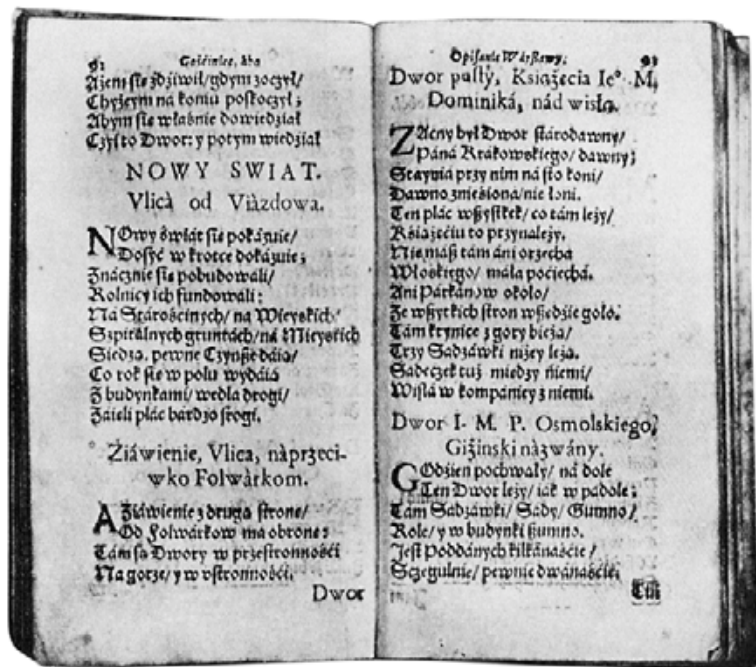 92 Gościniec, ábo
Ażem sie zdźiwił/ gdym zoczył/
Chyżeym na koniu poskoczył;
Abym sie właśnie dowiedział
Czyi to Dwor: y potym wiedział
NOWY SWIAT.
Vlicà od Viàzdowa.
NOwy świát sie pokázuie/
Dosyć w krotce dokázuie;
Znácznie sie pobudowáli/
Rolnicy ich fundowali:
Na Stárościnych/ na Wieyskich/
Szpitalnych gruntách/ ná Mieyskich
Siedzą. pewne Czynsze dáią/
Co rok sie w polu wydáią
Z budynkami/ wedla drogi/
Záieli plác bárdzo srogi.
Ziáwienie, Vlica, nàprzeci-
wko Folwàrkom.
A Ziáwienie z drugą stronę/
Od Folwárkow ma obronę:
Tám są Dwory w przestronnośći
Na gorze/ y w ostronnośći.
Dwor
Opisanie Wárszáwy. 93
Dwor pasty, Książecia Ieº. M.
Dominiká, nád wisłą.
ZAcny był Dwor stárodawny/
Páná Krákowskiego/ dawny;
Staynia przy nim na sto koni/
Dawno znieśiona/ nie łoni.
Ten plác wszystek/ co tám leży/
Książećiu to przynależy.
Nie masz tám áni orzechá
Włoskiego/ máła poćiechá.
Ani Párkanow około/
Ze wszytkich stron wszędzie goło.
Tám krynice z gory bieżą/
Trzy Sadzáwki niżey leżą.
Sadeczek tuż miedzy niemi/
Wisłá w kompániey z niemi.
Dwor I. M. P. Osmolskiego,
Giżinski nàzwány.
GOdzien pochwały/ ná dole
Ten Dwor leży/ iák w pádole;
Tám Sadzawki/ Sády/ Gumno/
Role/ y w budynki szumno.
Jest Poddánych kilkánaśćie/
Sczegulnie/ pewnie dwánaśćie.